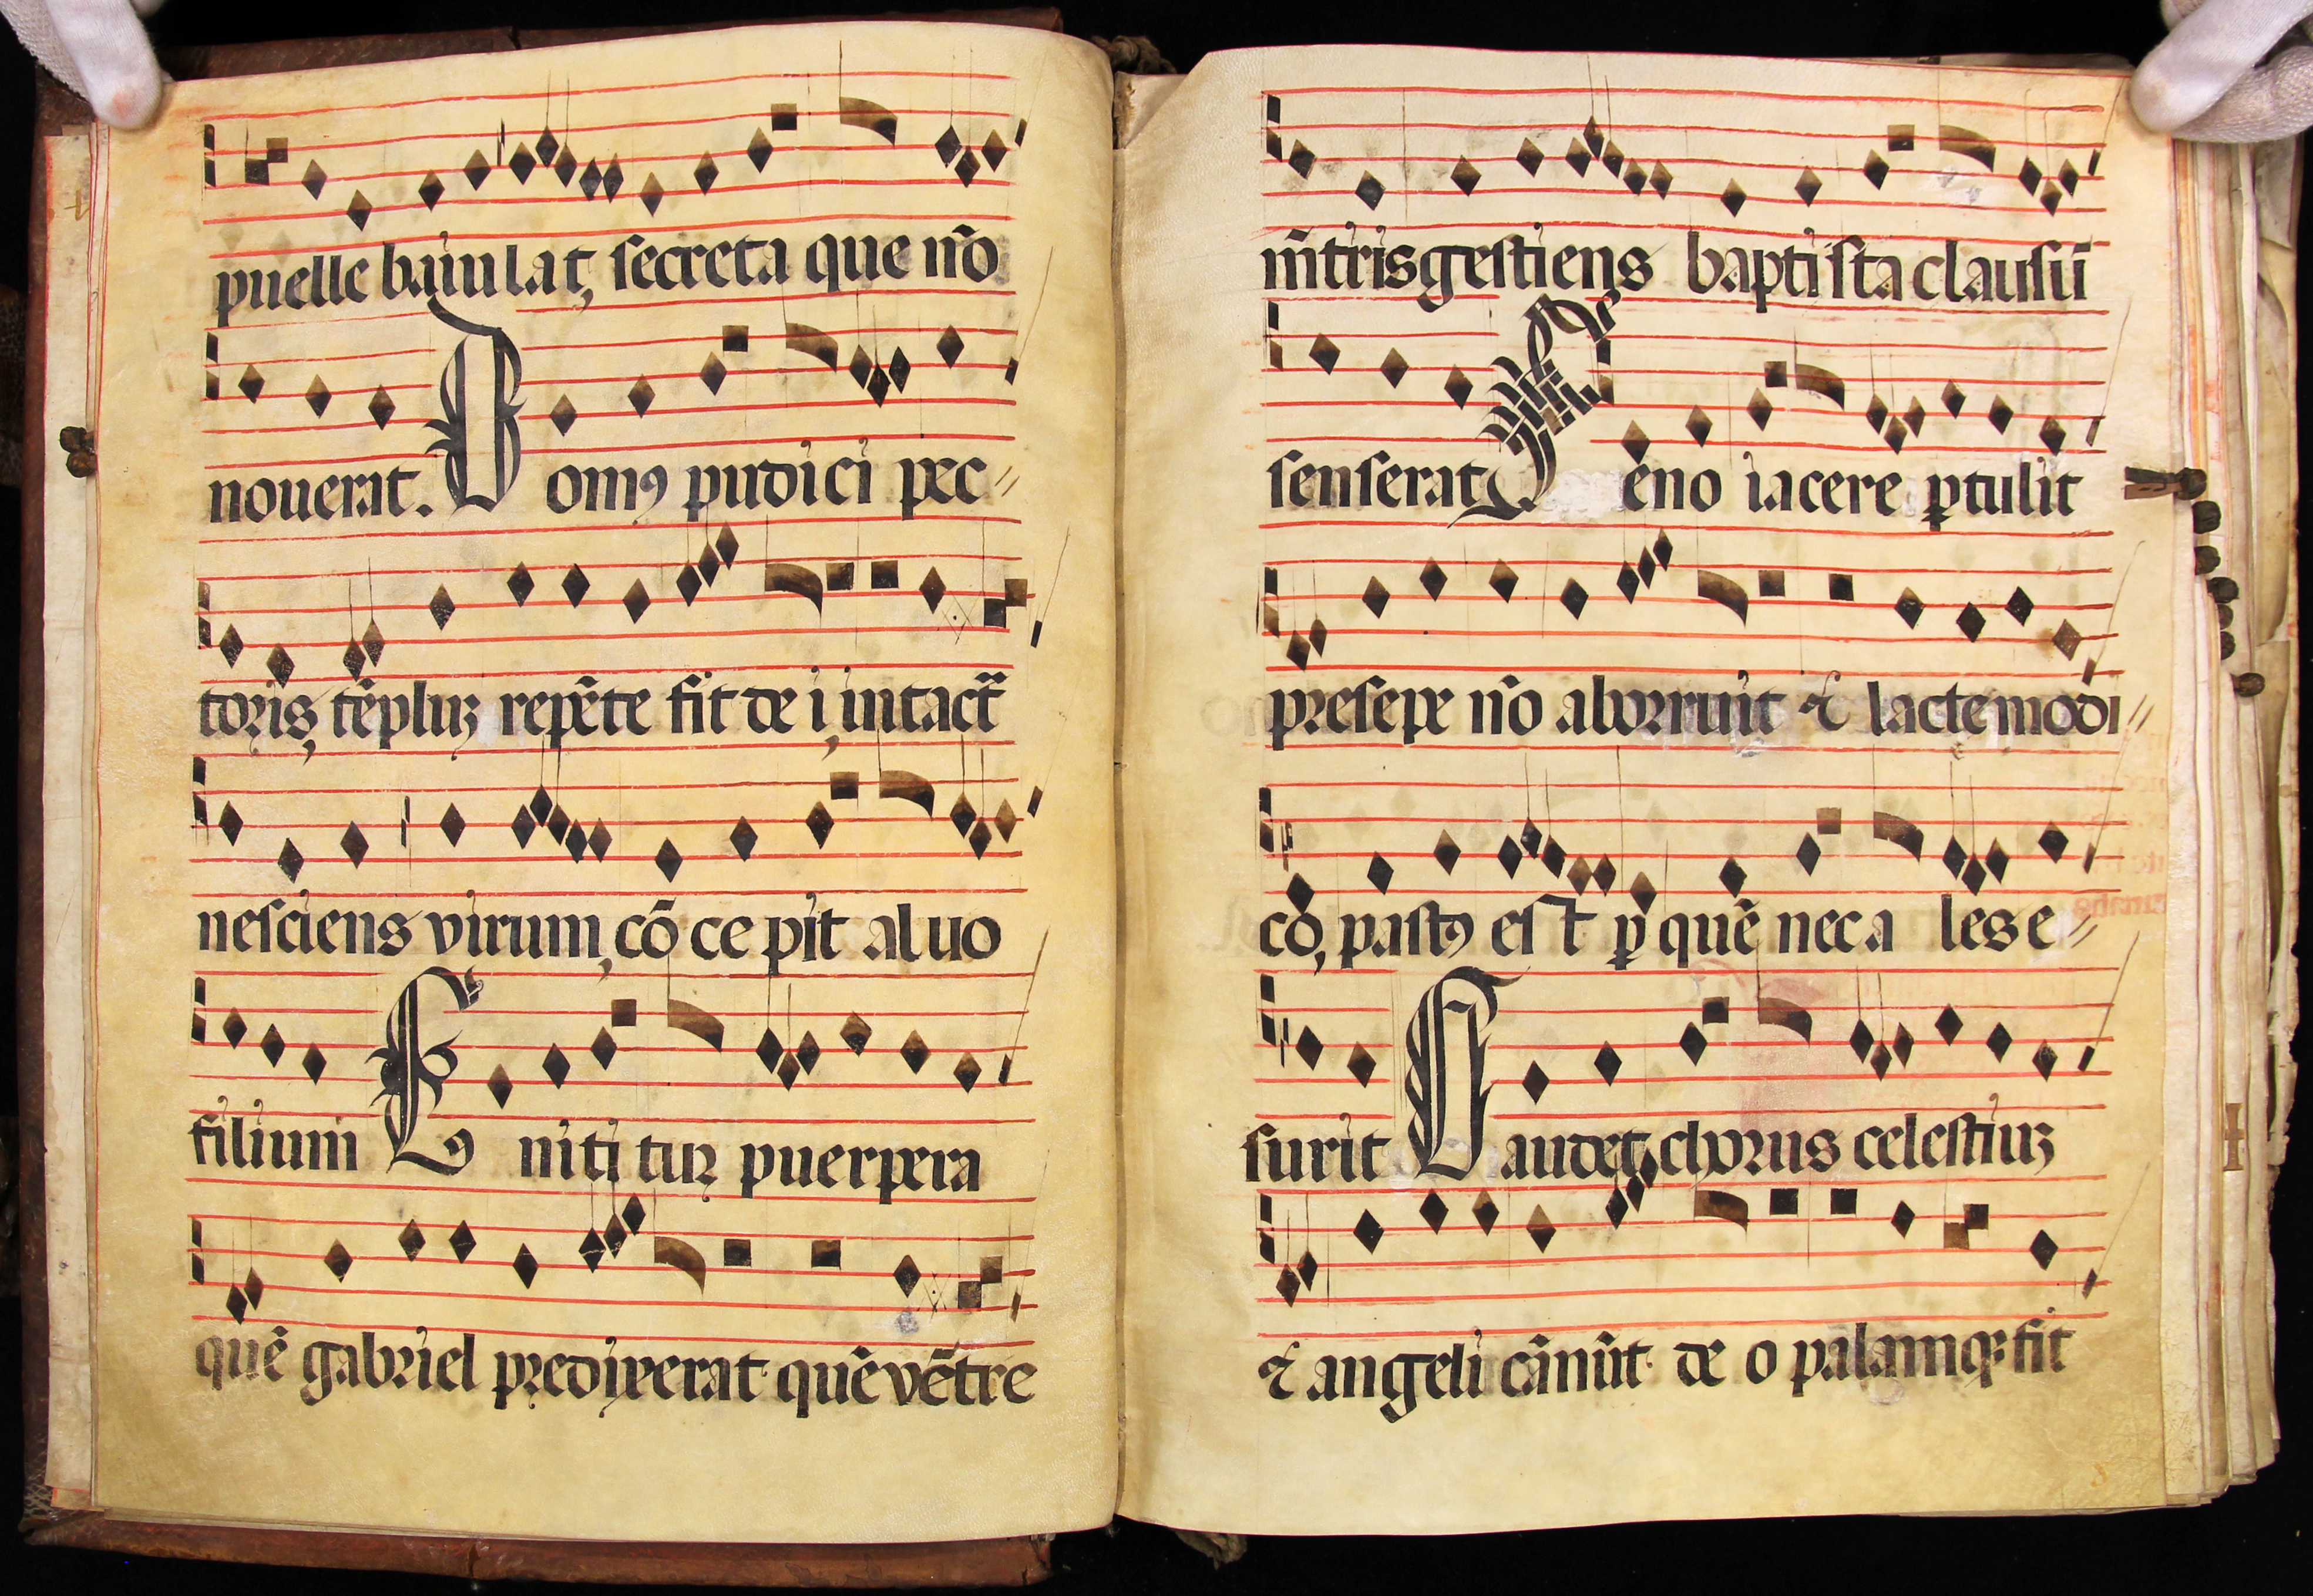 puelle baiulat, secreta que nō
nouerat. Domꝰ pudici pec〃
toris, tēpluꝫ repēte fit de i, intactā
nesciens virum, cōcepit aluo
filium Enititur puerpera
quē gabriel predixerat quē vētre
m̄tris gestiens baptista clausū
senserat Feno iacere ꝑtulit
presepe nō aborruit ⁊ lacte modi〃
co, pastꝰ est ꝑ quē nec ales e〃
surit Gaudet, chorus celestiuꝫ
⁊ angeli cānūt deo palamqꝫ fit